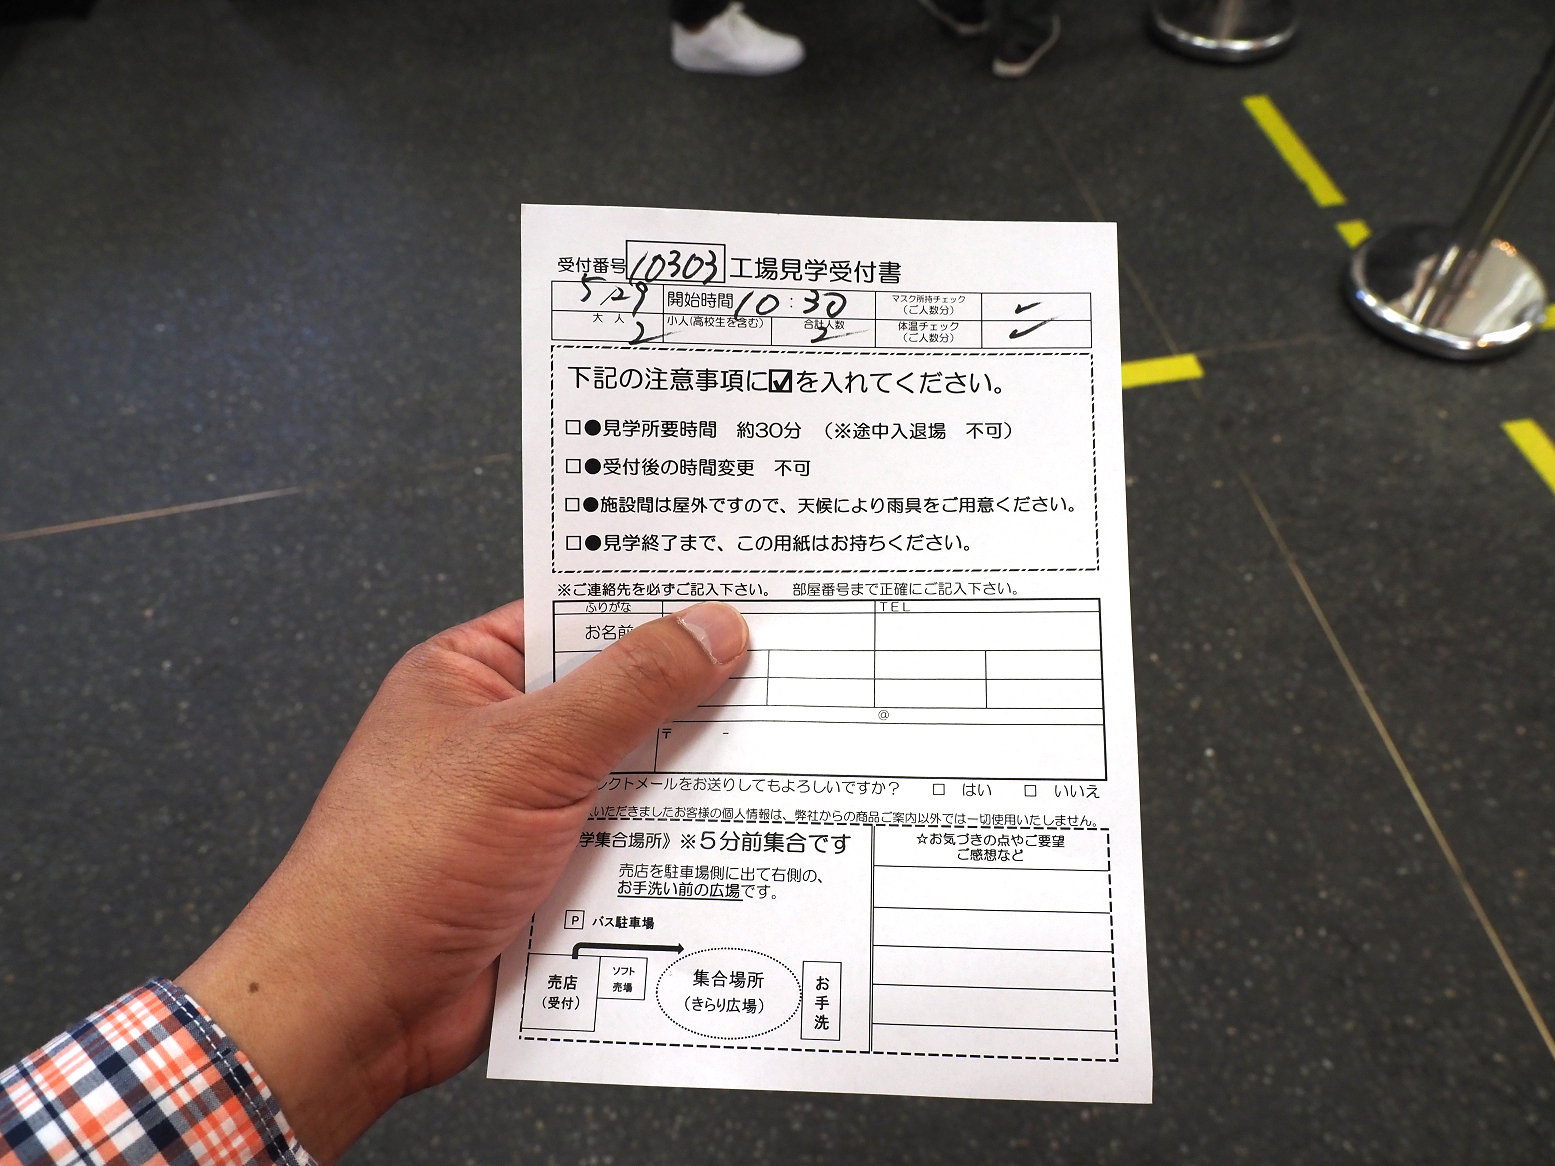 受付番号 10303 工場見学受付書
5/29 開始時間 10:30 マスク所持チェック (ご人数分) ✓
大人 2 小人(高校生を含む) 合計人数 2 体温チェック (ご人数分) ✓
下記の注意事項に☑を入れてください。
□●見学所要時間 約30分 (※途中入退場 不可)
□●受付後の時間変更 不可
□●施設間は屋外ですので、天候により雨具をご用意ください。
□●見学終了まで、この用紙はお持ちください。
※ご連絡先を必ずご記入下さい。 部屋番号まで正確にご記入下さい。
ふりがな TEL
お名前
@
〒 -
クトメールをお送りしてもよろしいですか? □ はい □ いいえ
いただきましたお客様の個人情報は、弊社からの商品ご案内以外では一切使用いたしません。
学集合場所》※5分前集合です
売店を駐車場側に出て右側の、
お手洗い前の広場です。
P バス駐車場
売店
(受付)
ソフト
売場
集合場所
(きらり広場)
お手洗
☆お気づきの点やご要望
ご感想など